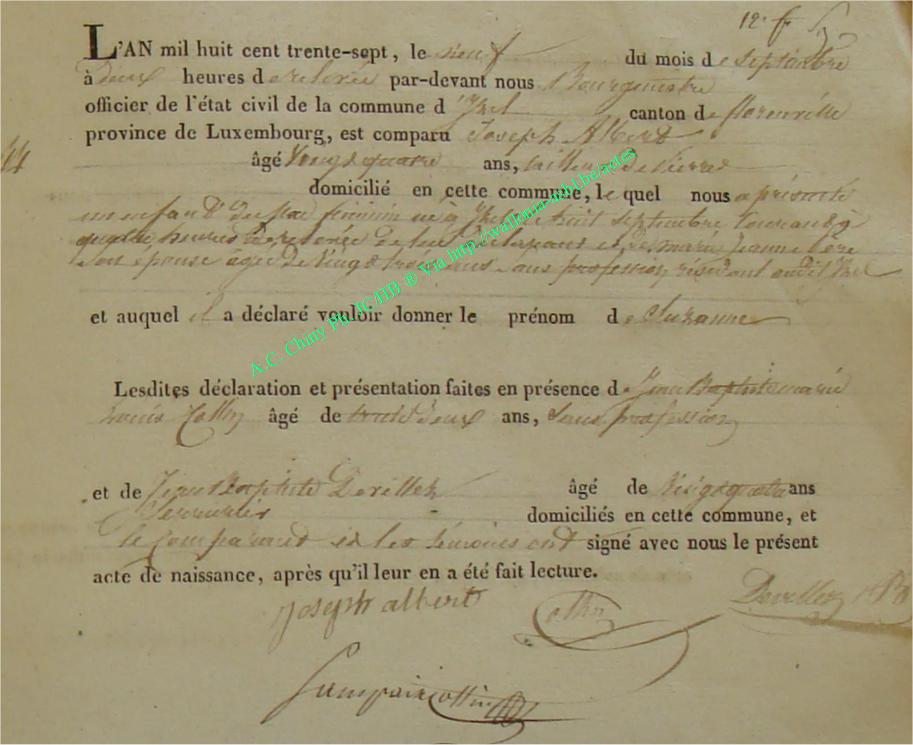 L'AN mil huit cent trente-sept, le neuf du mois de septembre
à deux heures de relevée par-devant nous Bourgmestre
officier de l'état civil de la commune d'Izel canton de florenville
province de Luxembourg, est comparu Joseph Albert
44
âgé Vingt quatre ans, tailleur de Pierre
domicilié en cette commune, le quel nous a présenté
un enfant du sexe féminin né à Izel le huit septembre courant à
quatre heures de relevée de lui déclarant et de marie jeanne
son épouse agée de Vingt trois ans sans profession résidant audit Izel
et auquel il a déclaré vouloir donner le prénom de Suzanne
Lesdites déclaration et présentation faites en présence de Jean Baptiste marie
Louis Collin âgé de trente deux ans, Sans profession
et de Jean Baptiste Devillez âgé de Vingt quatre ans
Serrurier domiciliés en cette commune, et
le Comparant et les témoins ont signé avec nous le présent
acte de naissance, après qu'il leur en a été fait lecture.
joseph albert Collin Devillez
A.C. Chiny Ph. JCHB ® Via http://wallonia-mbl.be/actes